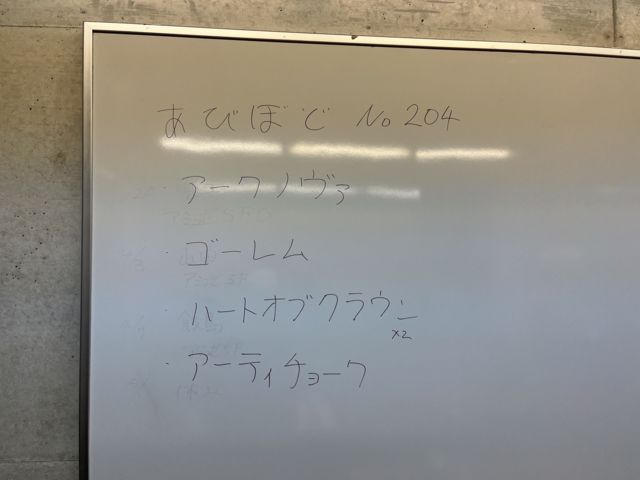 あびぼど No 204
・アークノヴァ
・ゴーレム
・ハートオブクラウン
x2
・アーティチョーク